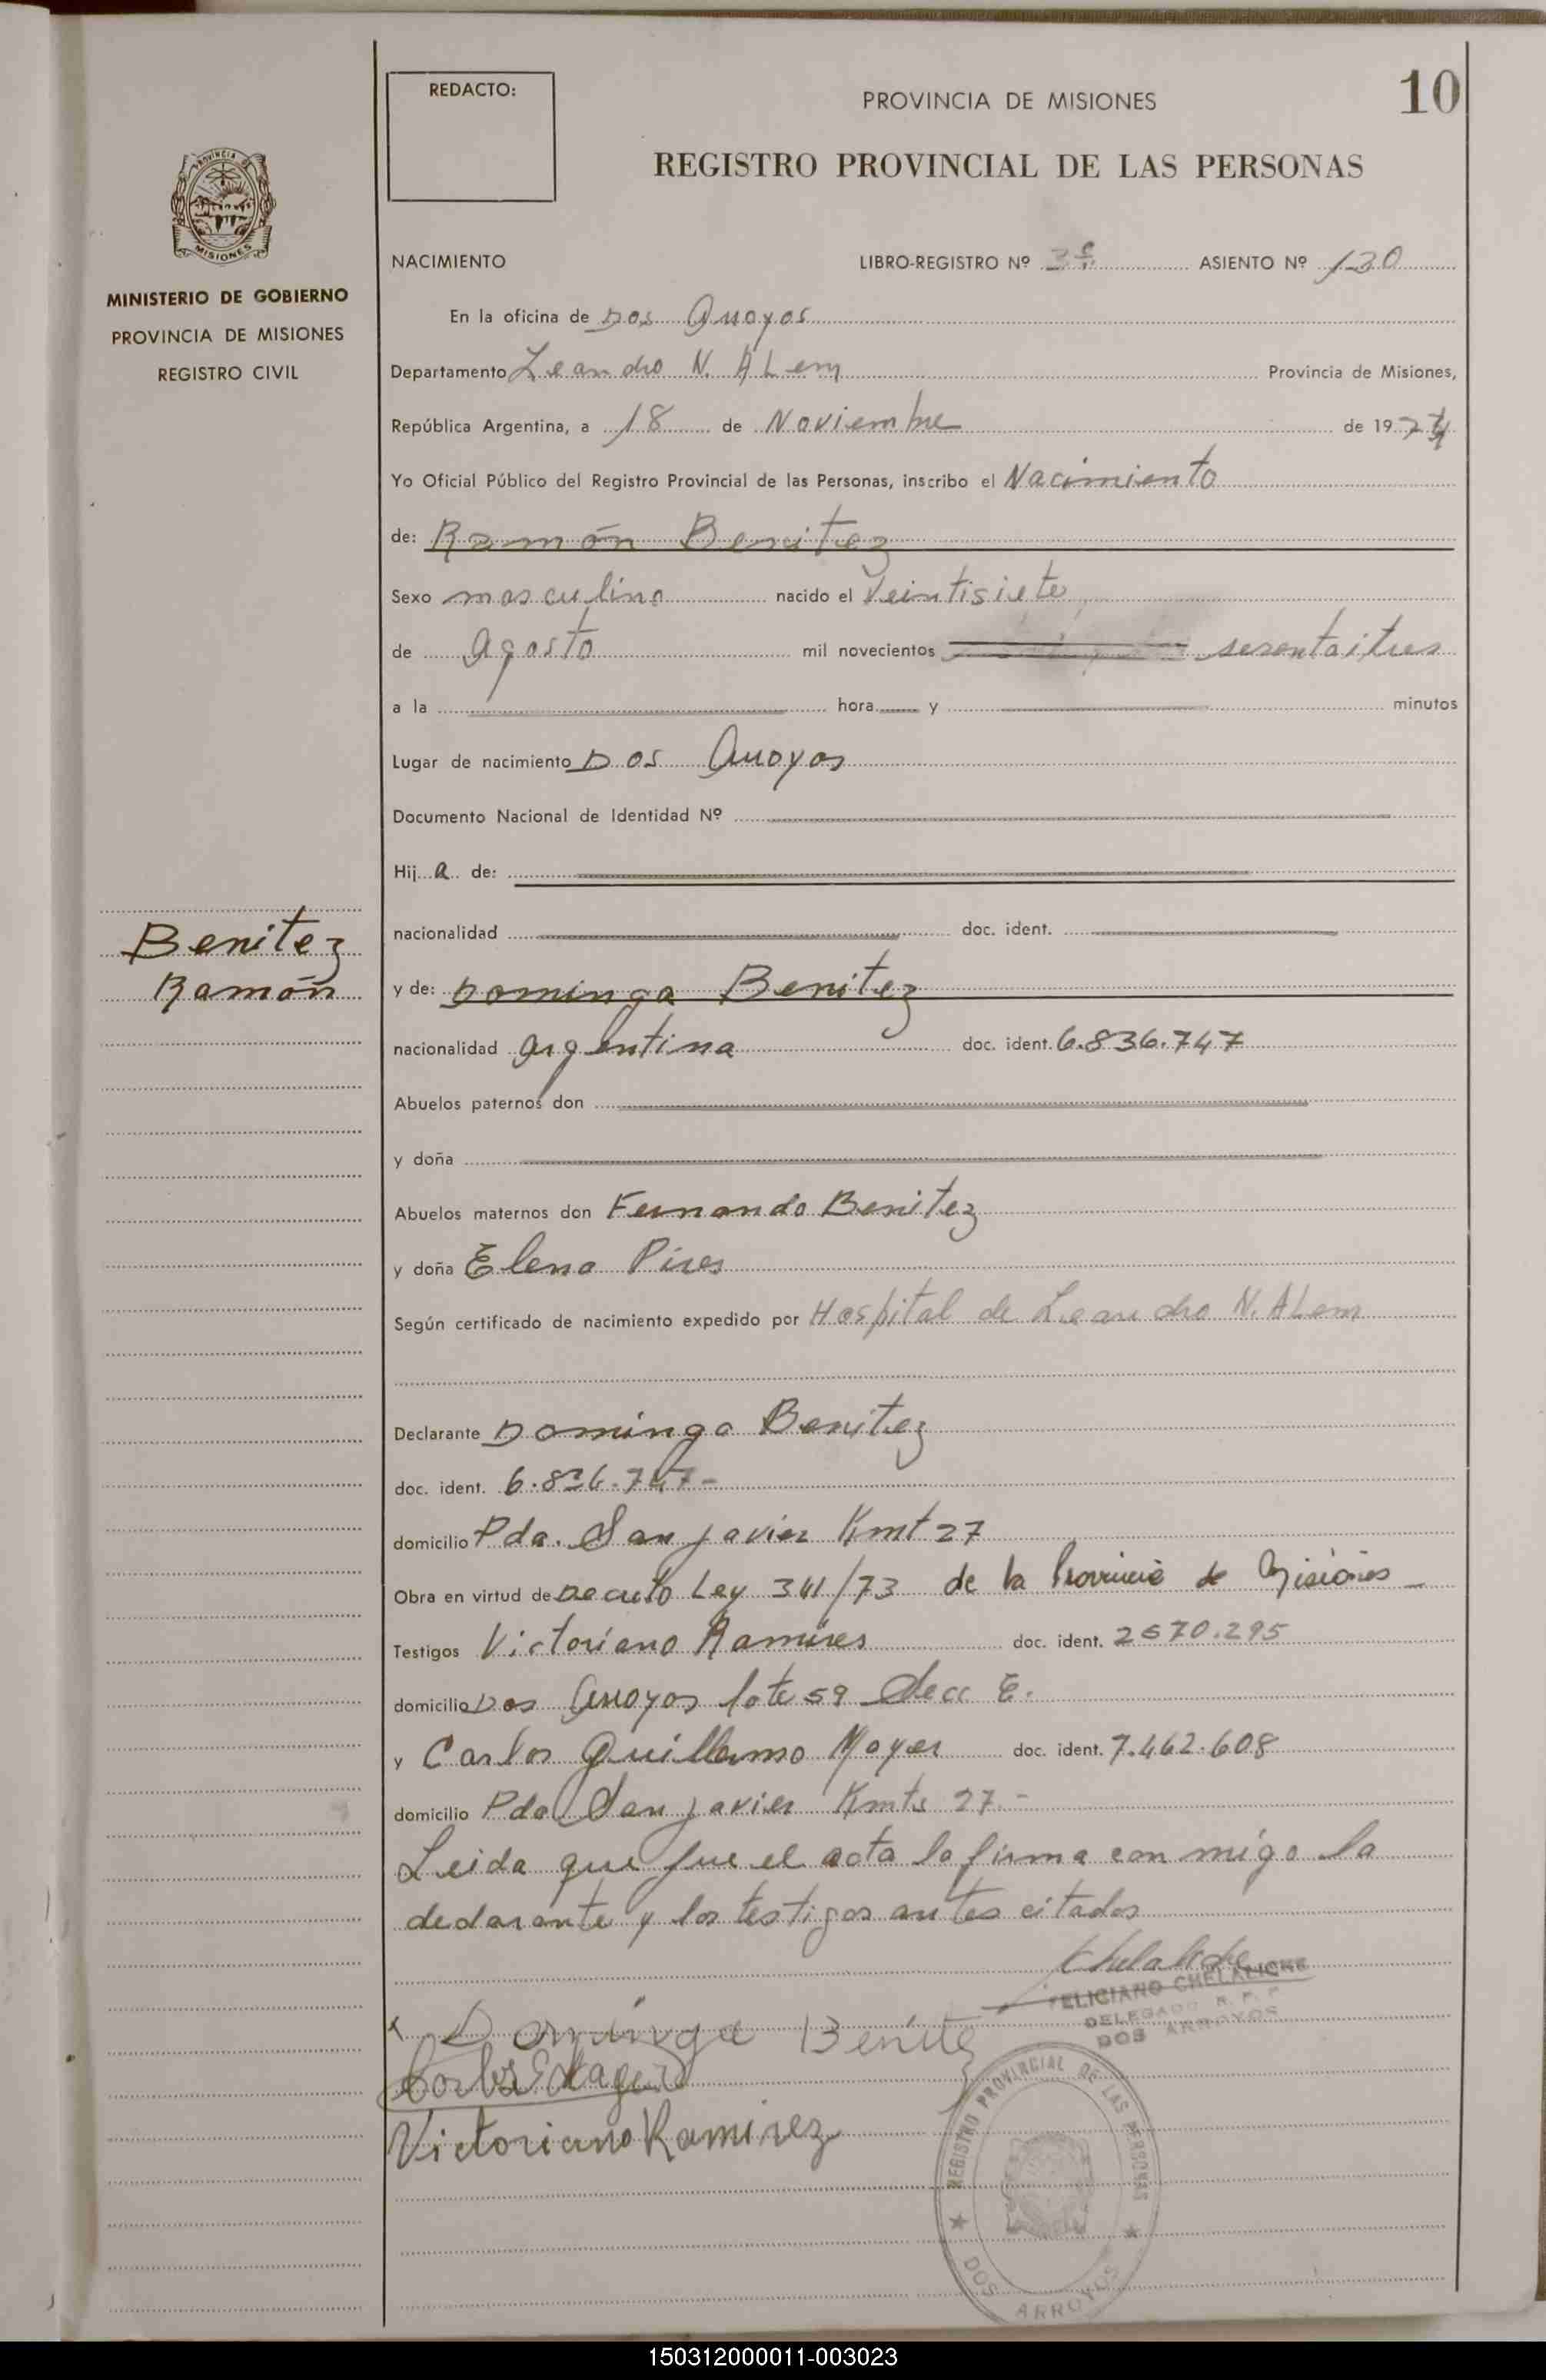 REDACTO:
PROVINCIA DE MISIONES
10
REGISTRO PROVINCIAL DE LAS PERSONAS
PROVINCIA DE
MISIONES
MINISTERIO DE GOBIERNO
PROVINCIA DE MISIONES
REGISTRO CIVIL
NACIMIENTO LIBRO-REGISTRO Nº ASIENTO Nº 130
En la oficina de Dos Arroyos
Departamento Leandro N. ALem Provincia de Misiones,
República Argentina, a 18 de Noviembre de 1974
Yo Oficial Público del Registro Provincial de las Personas, inscribo el Nacimiento
de: Ramón Benitez
Sexo masculino nacido el Veintisiete
de agosto mil novecientos sesentaitres
a la hora y minutos
Lugar de nacimiento Dos Arroyos
Documento Nacional de Identidad Nº
Hij a de:
nacionalidad doc. ident.
Benitez
Ramón
y de: Dominga Benitez
nacionalidad argentina doc. ident. 6.836.747
Abuelos paternos don
y doña
Abuelos maternos don Fernando Benitez
y doña Elena Pires
Según certificado de nacimiento expedido por Hospital de Leandro N. ALem
Declarante Dominga Benitez
doc. ident. 6.836.747-
domicilio Pda. San Javier Kmt 27
Obra en virtud de Decreto Ley 341/73 de la Provincia de Misiones
Testigos Victoriano Ramires doc. ident. 2670.295
domicilio Dos Arroyos lote 59 Secc E.
y Carlos Guillermo Mayer doc. ident. 7.462.608
domicilio Pda San Javier Kmts 27.-
Leida que fue el acta la firma con migo la
declarante y los testigos antes citados
Chelaliche
FELICIANO CHELALICHE
DELEGADO R. P. P.
DOS ARROYOS
x Dominga Benitez
Carlos G Mayer
Victoriano Ramirez
REGISTRO PROVINCIAL DE LAS PERSONAS
DOS ARROYOS
150312000011-003023